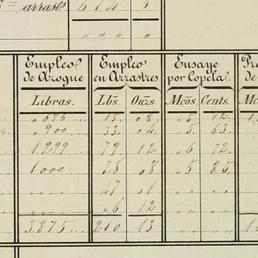 arrast
614 6
Empleo de Azogue Empleo en Arrastres Ensaye por Copela Pre de
Libras. Lbs. Onzs. Mcos Cents. Mc
676 13 08 5 12 13
900 33 04 5 63
1,299 79 12 6 72
1000 28 08 5 85
47 01
6 12
3.875 210 13 16